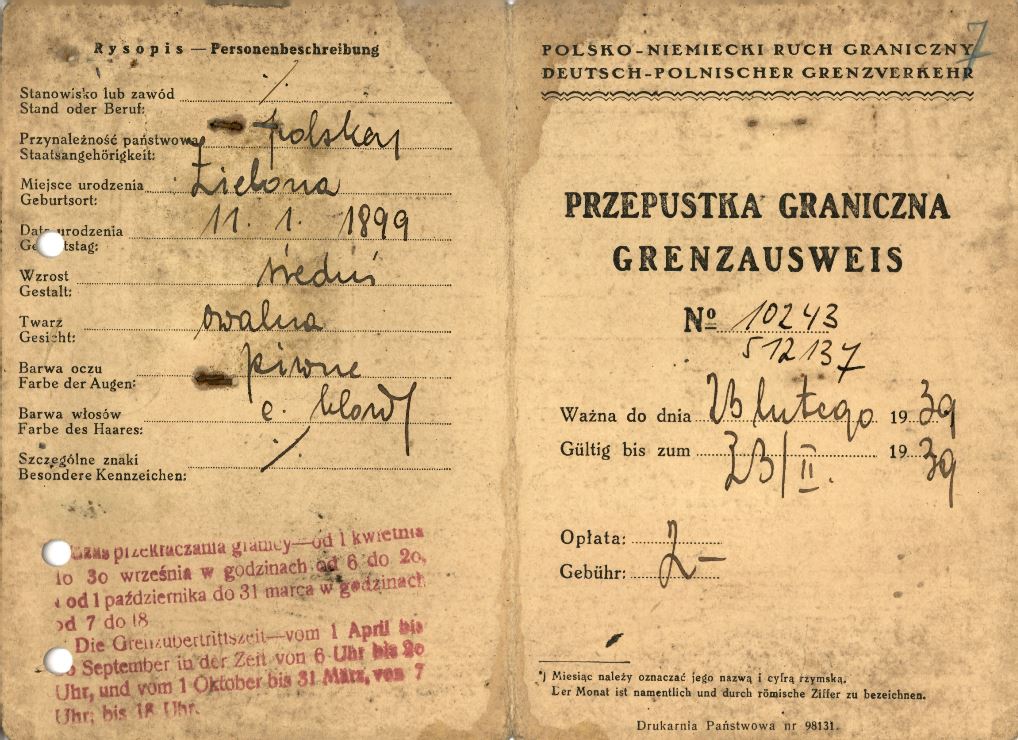 Rysopis — Personenbeschreibung
Stanowisko lub zawód
Stand oder Beruf:
Przynależność państwowa polska
Staatsangehörigkeit:
Miejsce urodzenia Zielona
Geburtsort:
Data urodzenia 11. 1. 1899
Geburtstag:
Wzrost średni
Gestalt:
Twarz owalna
Gesicht:
Barwa oczu piwne
Farbe der Augen:
Barwa włosów c. blond
Farbe des Haares:
Szczególne znaki
Besondere Kennzeichen:
Czas przekraczania granicy—od 1 kwietnia
do 30 września w godzinach od 6 do 20,
i od 1 października do 31 marca w godzinach
od 7 do 18
Die Grenzübertrittszeit—vom 1 April bis
September in der Zeit von 6 Uhr bis 20
Uhr, und vom 1 Oktober bis 31 März, von 7
Uhr, bis 18 Uhr.
7
POLSKO-NIEMIECKI RUCH GRANICZNY
DEUTSCH-POLNISCHER GRENZVERKEHR
PRZEPUSTKA GRANICZNA
GRENZAUSWEIS
Nº 10243
512137
Ważna do dnia 23 lutego 1939
Gültig bis zum 23/II. 1939
Opłata: 2-
Gebühr:
*) Miesiąc należy oznaczać jego nazwą i cyfrą rzymską.
Der Monat ist namentlich und durch römische Ziffer zu bezeichnen.
Drukarnia Państwowa nr 98131.